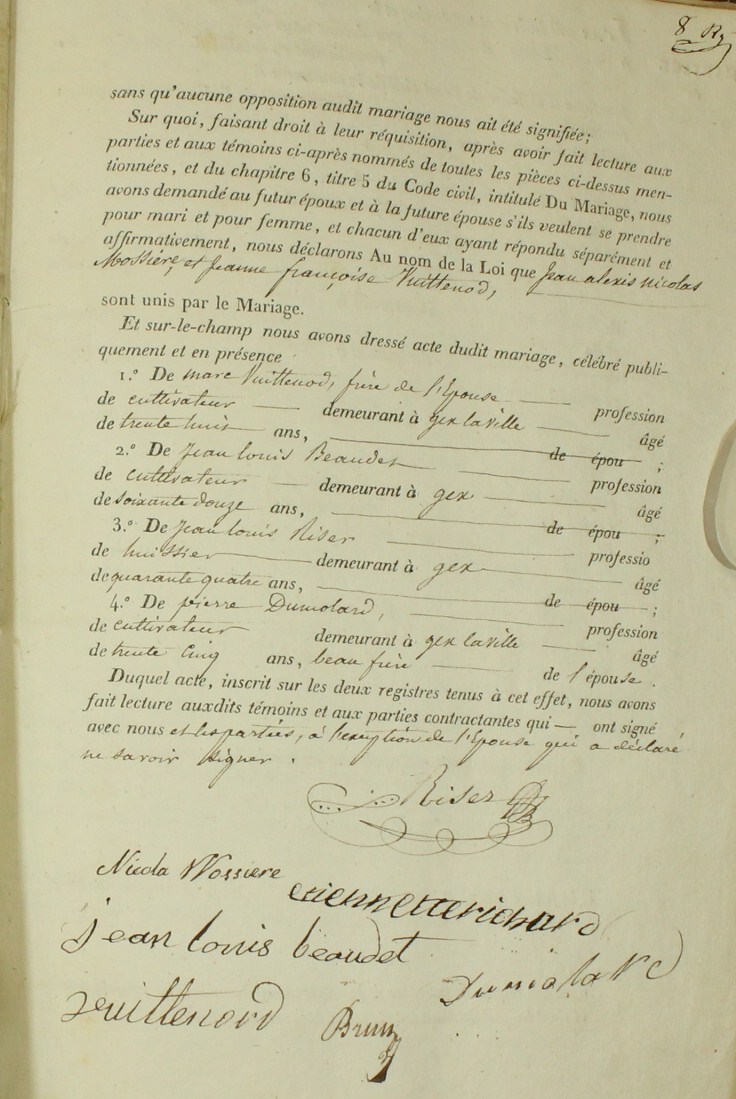 8
sans qu'aucune opposition audit mariage nous ait été signifiée;
Sur quoi, faisant droit à leur réquisition, après avoir fait lecture aux
parties et aux témoins ci-après nommés de toutes les pièces ci-dessus men-
tionnées, et du chapitre 6, titre 5 du Code civil, intitulé Du Mariage, nous
avons demandé au futur époux et à la future épouse s'ils veulent se prendre
pour mari et pour femme, et chacun d'eux ayant répondu séparément et
affirmativement, nous déclarons Au nom de la Loi que Jean alexis nicolas
Mossiere, et Jeanne françoise Vuittenod,
sont unis par le Mariage.
Et sur-le-champ nous avons dressé acte dudit mariage, célébré publi-
quement et en présence
1.º De marc Vuittenod, frère de l'Epouse profession
de cultivateur demeurant à gex la ville âgé
de trente huit ans, de épou ;
2.º De Jean louis Beaudet profession
de cultivateur demeurant à gex âgé
de soixante douze ans, de épou ;
3.º De Jean louis Riser professio
de huissier demeurant à gex âgé
de quarante quatre ans, de épou ;
4.º De pierre Dumolard, profession
de cultivateur demeurant à gex la ville âgé
de trente Cinq ans, beau frère de l'épouse.
Duquel acte, inscrit sur les deux registres tenus à cet effet, nous avons
fait lecture auxdits témoins et aux parties contractantes qui — ont signé
avec nous et les parties, à l'exeption de l'Epouse qui a déclaré
ne savoir signer.
Riser
Nicola Mossiere
etiennette richard
jean louis beaudet
Dumolard
vuittenord
Brun